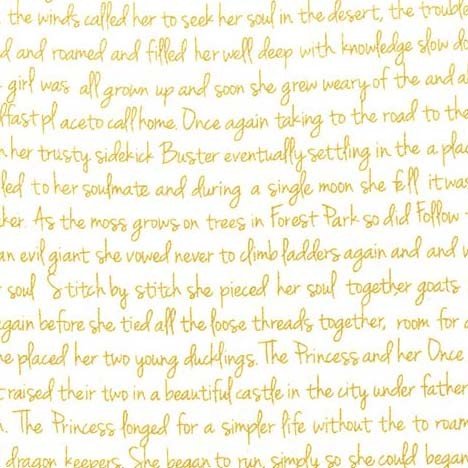 the winds called her to seek her soul in the desert, the trouble
d and roamed and filled her well deep with knowledge slow do
girl was all grown up and soon she grew weary of the and a
fast pl aceto call home. Once again taking to the road to the
her trusty sidekick Buster eventually settling in the a plac
led to her soulmate and during a single moon she fell it was
ker. As the moss grows on trees in Forest Park so did Follow
an evil giant she vowed never to climb ladders again and and w
soul Stitch by stitch she pieced her soul together goats
gain before she tied all the loose threads together, room for
e placed her two young ducklings. The Princess and her Once
raised their two in a beautiful castle in the city under father
. The Princess longed for a simpler life without the to roam
dragon keepers. She began to run, simply so she could began